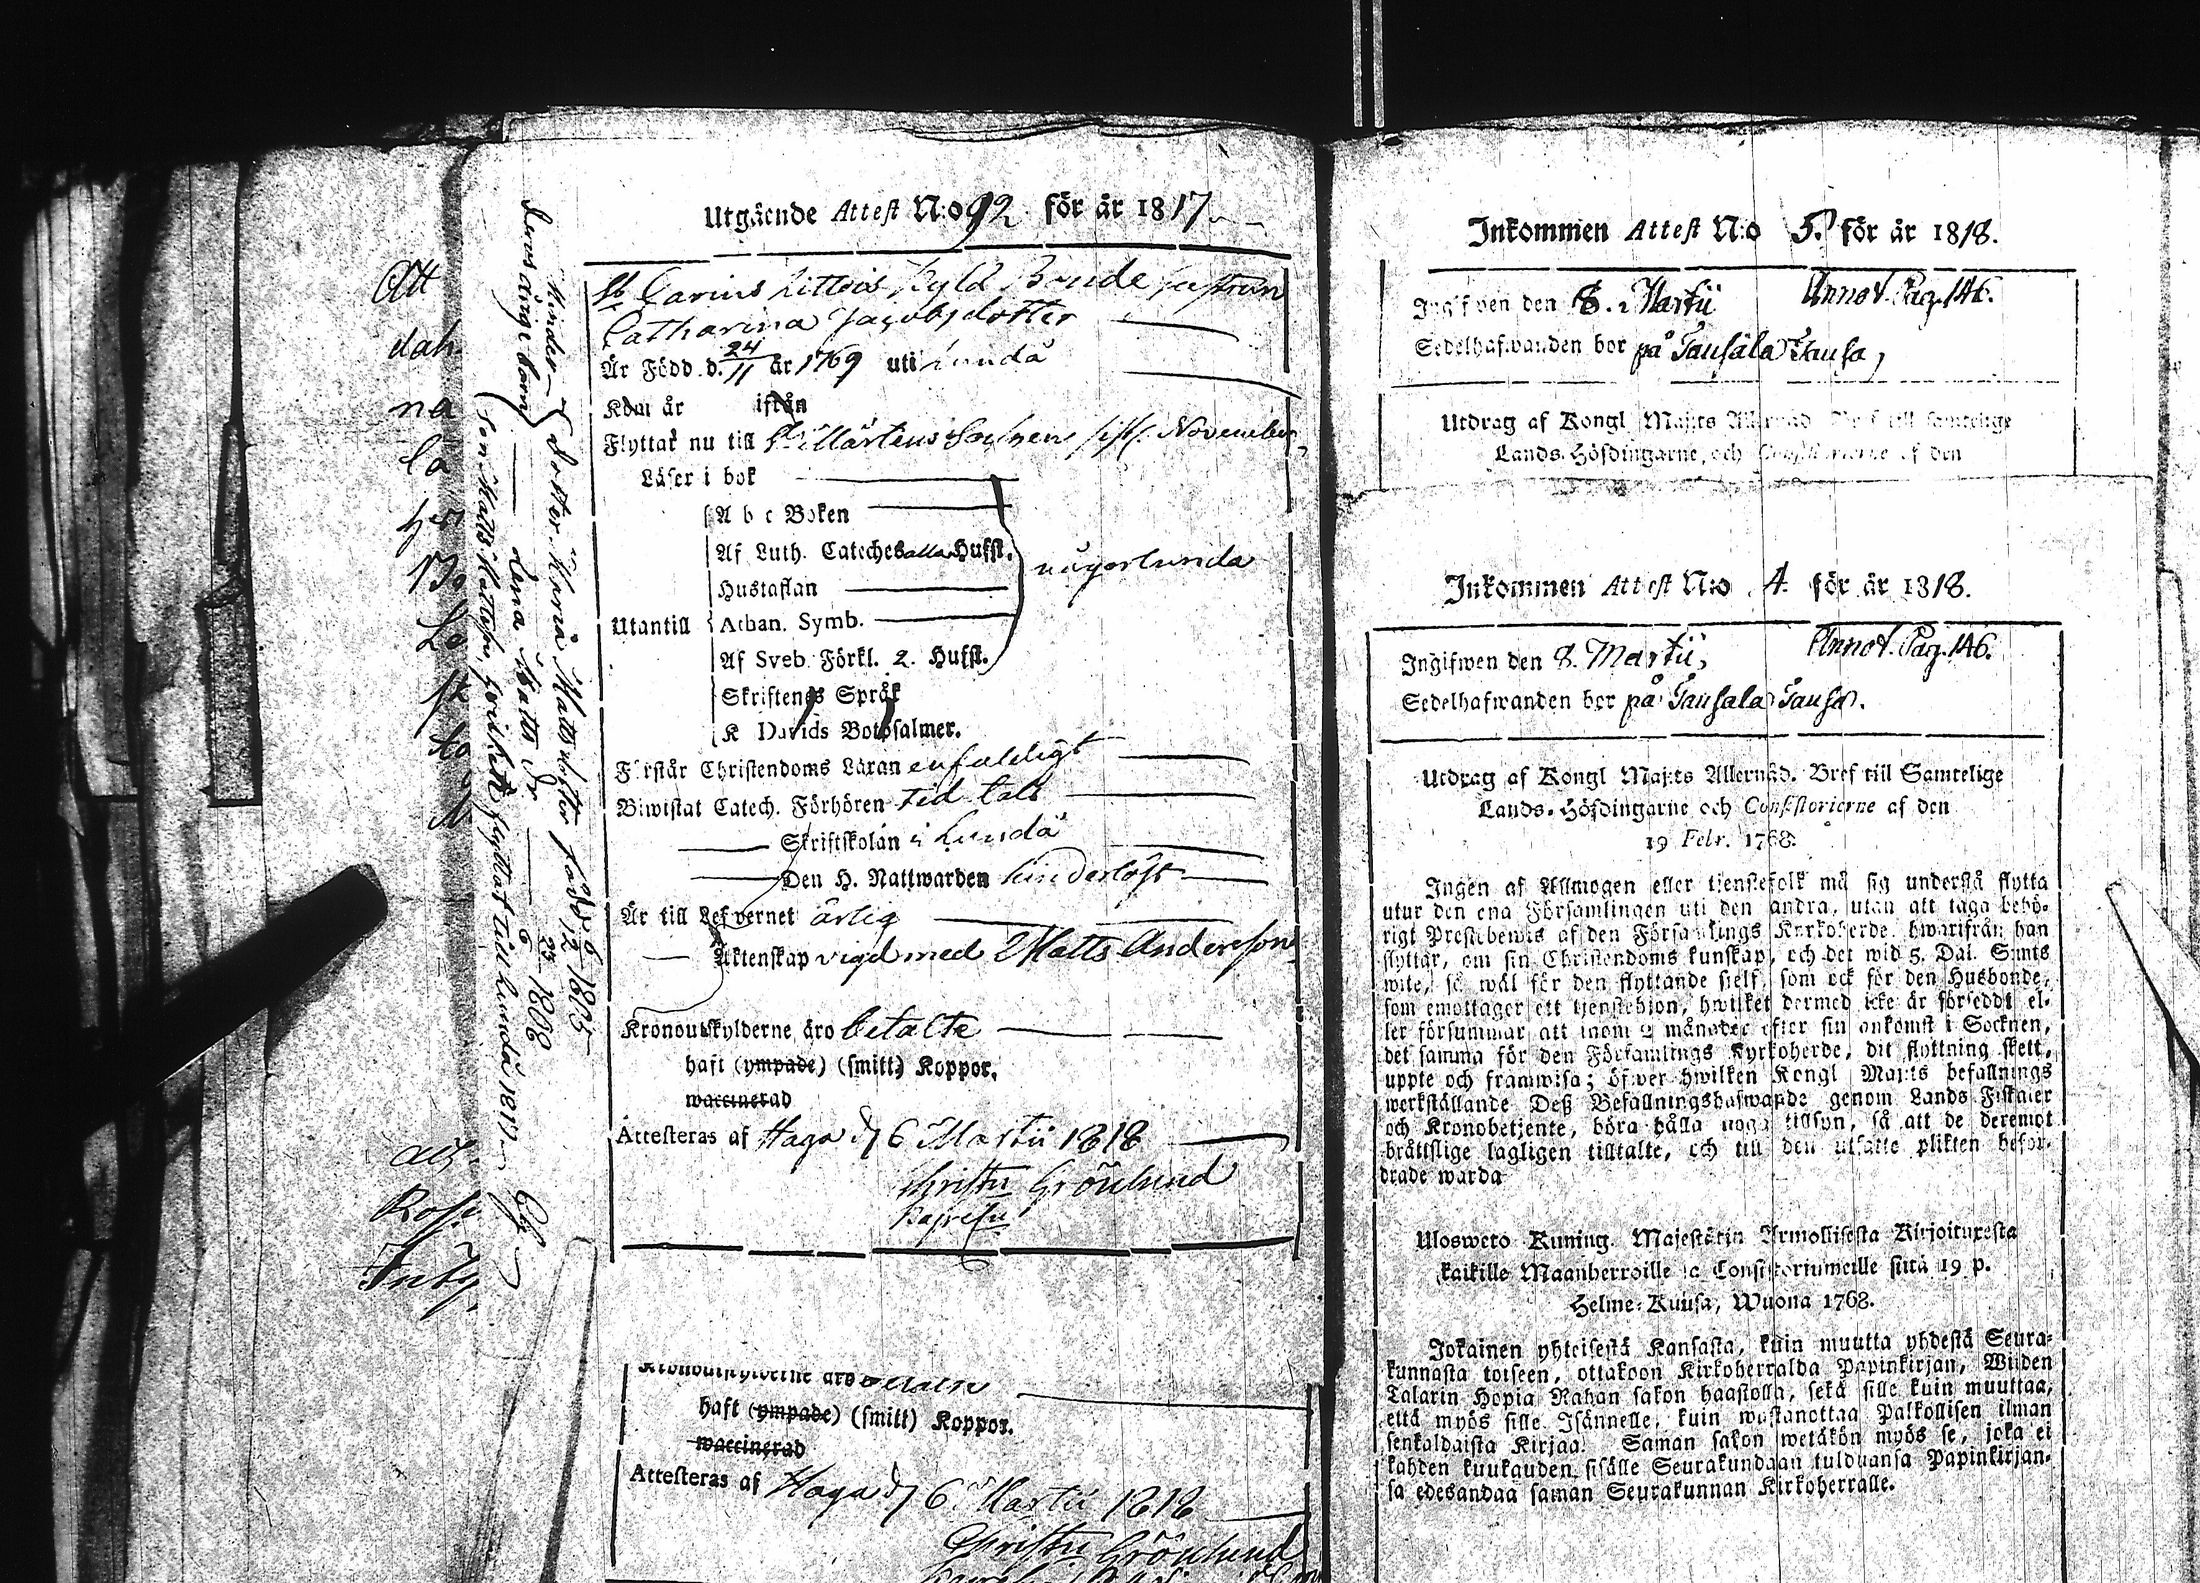 Utgående Attest N:o 92 för år 1817
St Carins Bonde hustrun
Catharina Jacobsdotter
Är Född d. 24/11 år 1769 uti Lundå
Kom år ifrån
Flyttar nu till St Mårtens Sochnen sistl. November
Läser i bok
A b c Boken
Af Luth. Cateches alla Hufst.
Hustaflan
Utantill Athan. Symb.
Af Sveb. Förkl. 2. Hufst.
någorlunda
Skriftenes Språk
K Davids Botpsalmer.
Förstår Christendoms Läran enfaldigt
Biwistat Catech. Förhören Tid tals
Skriftskolan i Lundå
Den H. Nattwarden hinderlöst
Är till Lefvernet ärlig
Äktenskap vigd med Matts Andersson
Kronoutskylderne äro betalte
haft (ympade) (smitt.) Koppor.
waccinerad
Attesteras af Haga d 6 Martii 1818
Christn Grönlund
Minder-
deras ånge barn
Dotter Mattsdotter född 6/12 1805
Lena Matts Dr 23/6 1808
Son Matts Mattsson, flyttat till Lundå 1817
Att
dah
na
la
Kronoutskylderne äro betalte
haft (ympade) (smitt) Koppor.
waccinerad
Attesteras af Haga d 6 Martii 1818
Christn Grönlund
Inkommen Attest N:o 5. för år 1818.
Ingifwen den 8. Martii Annot. Pag. 146.
Sedelhafwanden bor på Tausala Tausa,
Utdrag af Kongl Maj:ts Allernåd. Bref till samtelige
Lands-Höfdingarne, och Consistorierne af den
Inkommen Attest N:o 4. för år 1818.
Ingifwen den 8. Martii, Annot. Pag. 146.
Sedelhafwanden bor på Tausala Tausa.
Utdrag af Kongl Maj:ts Allernåd. Bref till Samtelige
Lands-Höfdingarne och Consistorierne af den
19 Febr. 1768.
Ingen af Allmogen eller tjenstefolk må sig understå flytta
utur den ena Församlingen uti den andra, utan att taga behö-
rigt Prestebewis af den Församlings Kyrkoherde, hwarifrån han
flyttar, om sin Christendoms kunskap, och det wid 5. Dal. Smts
wite, så wäl för den flyttande sjelf, som ock för den Husbonde,
som emottager ett tjenstehjon, hwilket dermed icke är försedt el-
ler försummar att inom 2 månader efter sin ankomst i Socknen,
det samma för den Församlings Kyrkoherde, dit flyttning skett,
uppte och framwisa; öfwer hwilken Kongl Maj:ts befallnings
werkställande Deß Befallningshafwande genom Lands Fiskaler
och Kronobetjente, böra hålla noga tillsyn, så att de deremot
bråttslige lagligen tilltalte, och till den utsatte plikten befor-
drade warda
Ulosweto Kuning. Majestätin Armollisesta Kirjoituxesta
kaikille Maanherroille ja Consistoriumeille siitä 19 p.
Helme-Kuusa, Wuona 1768.
Jokainen yhteisestä Kansasta, kuin muutta yhdestä Seura-
kunnasta toiseen, ottakoon Kirkoherralda Papinkirjan, Wijden
Talarin Hopia Rahan sakon haastolla, sekä sille kuin muuttaa,
että myös sille Isännelle, kuin wastanottaa Palkollisen ilman
senkaldaista Kirjaa. Saman sakon wetäkön myös se, joka ei
kahden kuukauden sisälle Seurakundaan tulduansa Papinkirjan-
sa edesandaa saman Seurakunnan Kirkoherralle.